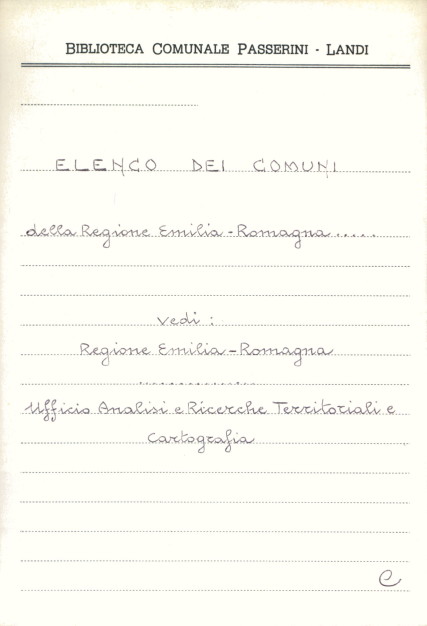 BIBLIOTECA COMUNALE PASSERINI - LANDI
ELENCO DEI COMUNI
della Regione Emilia-Romagna.....
vedi :
Regione Emilia-Romagna
..............
Ufficio Analisi e Ricerche Territoriali e
Cartografia
C